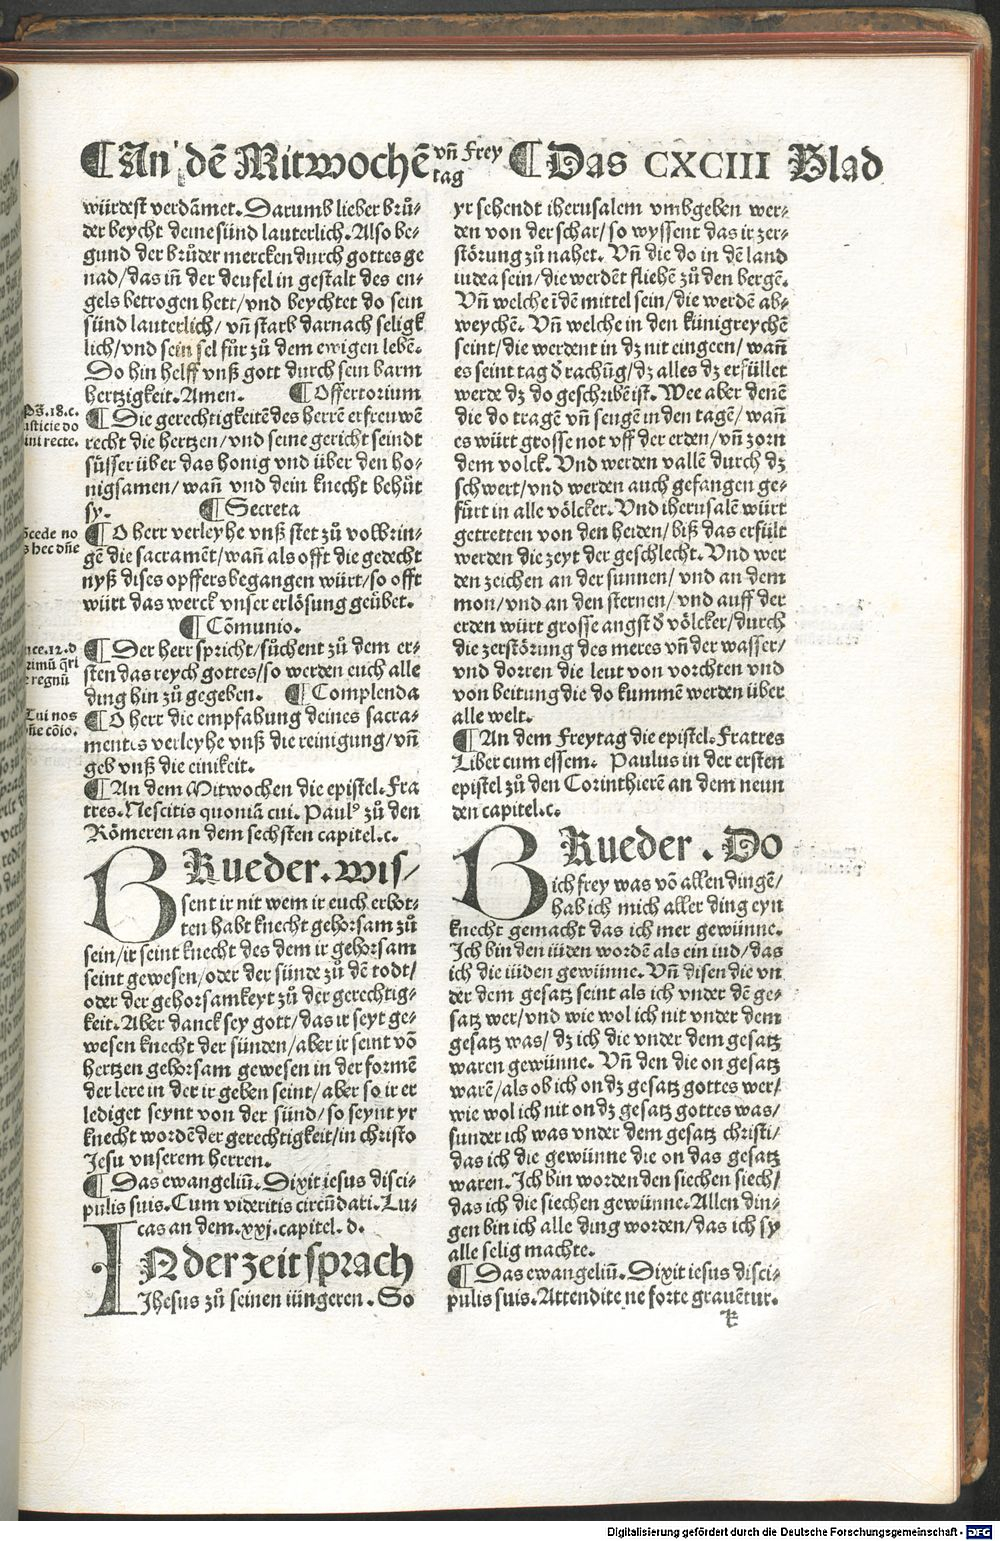 ¶An dē Mitwochē vn̄ Frey
tag
¶Das CXCIII Blad
würdest verdāmet. Darumb lieber brů⸗
der beycht deine sünd lauterlich. Also be⸗
gund der brůder mercken durch gottes ge
nad/das in̄ der deufel in gestalt des en⸗
gels betrogen hett/vnd beychtet do sein
sünd lauterlich/ vn̄ starb darnach seligk
lich/vnd sein sel fůr zů dem ewigen lebē.
Do hin helff vnß gott durch sein barm
hertzigkeit. Amen. ¶Offertorium
¶Die gerechtigkeitē des herrē erfreuwē
recht die hertzen/vnd seine gericht seindt
sůsser über das honig vnd über den ho⸗
nigsamen/ wan̄ vnd dein knecht behůt
sy. ¶Secreta
¶O herr verleyhe vnß stet zů volbrin⸗
gē die sacramēt/wan̄ als offt die gedecht
nyß dises opffers begangen würt/so offt
würt das werck vnser erlösung geůbet.
¶Cōmunio.
¶Der herr spricht/sůchent zů dem er⸗
sten das reych gottes/so werden euch alle
ding hin zů gegeben. ¶Complenda
¶O herr die empfahung deines sacra⸗
mentes verleyhe vnß die reinigung/vn̄
geb vnß die einikeit.
¶An dem Mitwochen die epistel. Fra
tres. Nescitis quoniā cui. Paulꝰ zů den
Römeren an dem sechsten capitel.c.
BRueder. wis⸗
sent ir nit wem ir euch erbot⸗
ten habt knecht gehorsam zů
sein/ir seint knecht des dem ir gehorsam
seint gewesen/oder der sünde zů dē todt/
oder der gehorsamkeyt zů der gerechtig⸗
keit. Aber danck sey gott/das ir seyt ge⸗
wesen knecht der sünden/aber ir seint vō
hertzen gehorsam gewesen in der formē
der lere in der ir geben seint/aber so ir er
lediget seynt von der sünd/so seynt yr
knecht wordē der gerechtigkeit/in christo
Jesu vnserem herren.
¶Das ewangeliū. Dixit iesus disci⸗
pulis suis. Cum videritis circūdati. Lu⸗
cas an dem.xxj.capitel. d.
IN der zeit sprach
Jhesus zů seinen iüngeren. So
Ps̄.18.c.
usticie do
ini recte.
ōcede no
s hec dn̄e
uce.12.d
rimū q̄ri
e regnū
Tui nos
n̄e cōio.
yr sehendt iherusalem vmbgeben wer⸗
den von der schar/ so wyssent das ir zer⸗
störung zů nahet. Vn̄ die do in dē land
iudea sein/die werdēt fliehē zů den bergē.
Vn̄ welche īdē mittel sein/die werdē ab⸗
weychē. Vn̄ welche in den künigreychē
seint/die werdent in dz nit eingeen/ wan̄
es seint tag d̄ rachūg/dz alles dz erfüllet
werde dz do geschribē ist. Wee aber denē
die do tragē vn̄ sengē in den tagē/ wan̄
es würt grosse not vff der erden/vn̄ zorn
dem volck. Vnd werden vallē durch dz
schwert/vnd werden auch gefangen ge⸗
fůrt in alle völcker. Vnd iherusalē würt
getretten von den heiden/biß das erfült
werden die zeyt der geschlecht. Vnd wer
den zeichen an der sunnen/ vnd an dem
mon/vnd an den sternen/vnd auff der
erden würt grosse angst d̄ völcker/durch
die zerstörung des meres vn̄ der wasser/
vnd dorren die leut von vorchten vnd
von beitung die do kummē werden über
alle welt.
¶An dem Freytag die epistel. Fratres
Liber cum essem. Paulus in der ersten
epistel zů den Corinthierē an dem neun
den capitel.c.
BRueder. Do
ich frey was vō allen dingē/
hab ich mich aller ding eyn
knecht gemacht das ich mer gewünne.
Ich bin den iüden wordē als ein iud/das
ich die iüden gewünne. Vn̄ disen die vn
der dem gesatz seint als ich vnder dē ge⸗
satz wer/vnd wie wol ich nit vnder dem
gesatz was/ dz ich die vnder dem gesatz
waren gewünne. Vn̄ den die on gesatz
warē/als ob ich on dz gesatz gottes wer/
wie wol ich nit on dz gesatz gottes was/
sunder ich was vnder dem gesatz christi/
das ich die gewünne die on das gesatz
waren. Ich bin worden den siechen siech/
das ich die siechen gewünne. Allen din⸗
gen bin ich alle ding worden/das ich sy
alle selig machte.
¶Das ewangeliū. Dixit iesus disci⸗
pulis suis. Attendite ne forte grauētur.
k
Digitalisierung gefördert durch die Deutsche Forschungsgemeinschaft - DFG